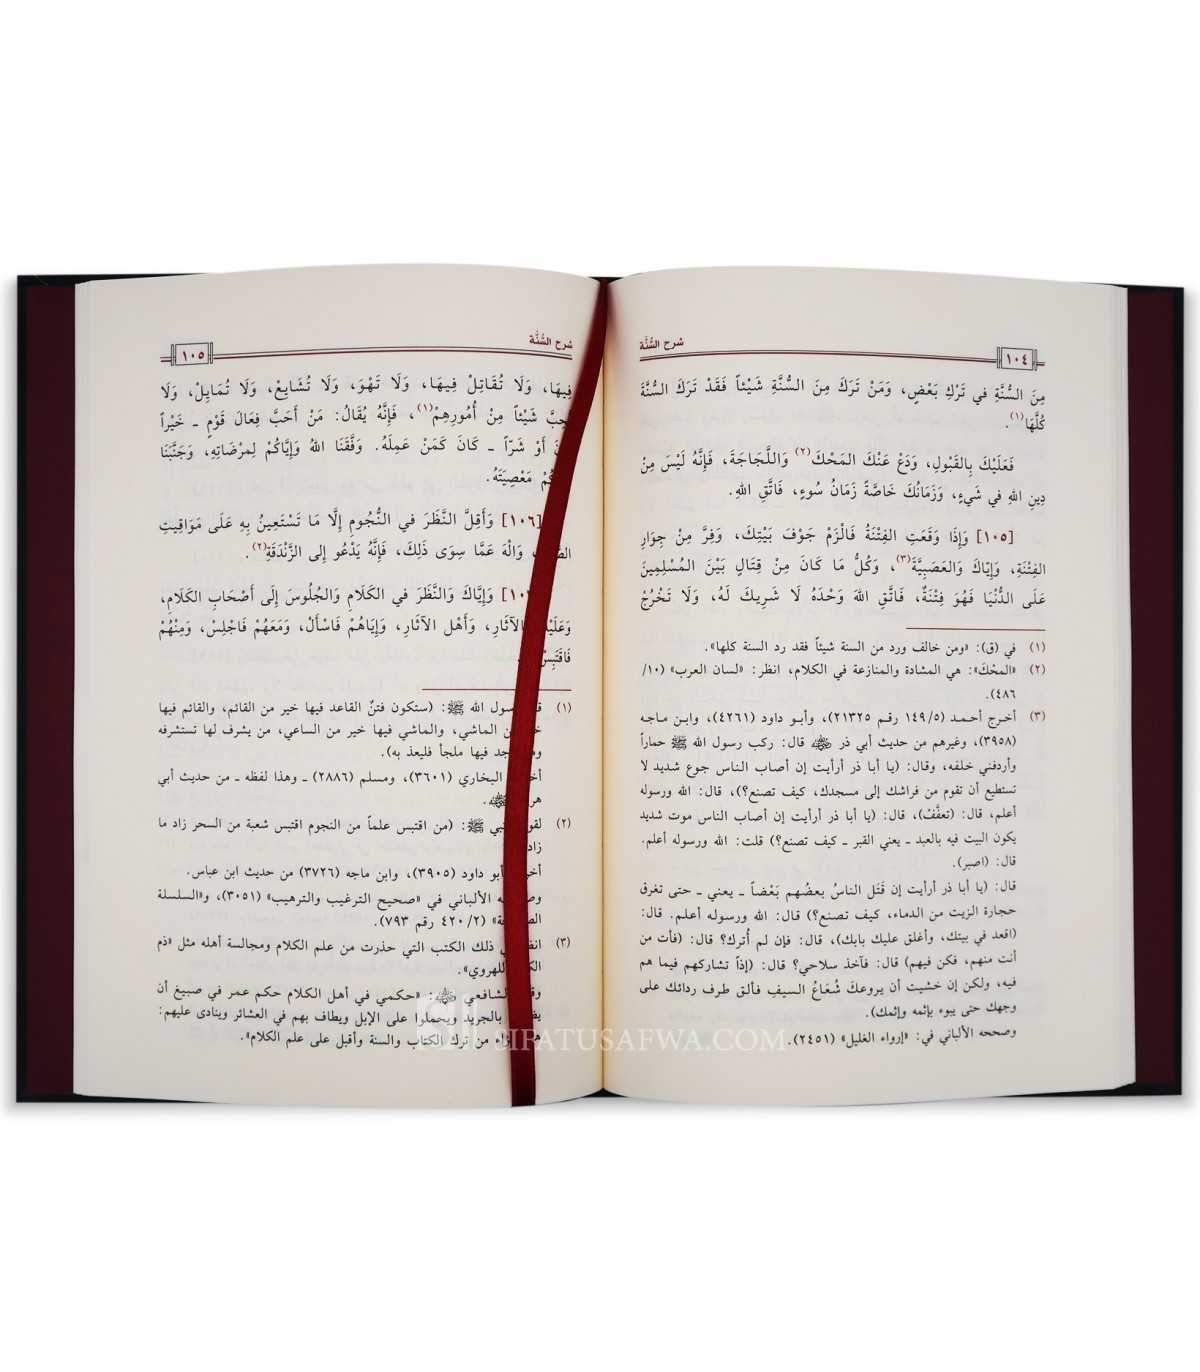 شرح السُّنَّة
١٠٤
مِنَ السُّنَّةِ في تَرْكِ بَعْضٍ، وَمَنْ تَرَكَ مِنَ السُّنَّةِ شَيْئاً فَقَدْ تَرَكَ السُّنَّةَ
كُلَّهَا(١).
فَعَلَيْكَ بِالقَبُولِ، وَدَعْ عَنْكَ المَحْكَ(٢) وَاللَّجَاجَةَ، فَإِنَّهُ لَيْسَ مِنْ
دِينِ اللهِ في شَيءٍ، وَزَمَانُكَ خَاصَّةً زَمَانُ سُوءٍ، فَاتَّقِ اللهِ.
[١٠٥] وَإِذَا وَقَعَتِ الفِتْنَةُ فَالْزَمْ جَوْفَ بَيْتِكَ، وَفِرَّ مِنْ جِوَارِ
الفِتْنَةِ، وَإِيَّاكَ وَالعَصَبِيَّةَ(٣)، وَكُلُّ مَا كَانَ مِنْ قِتَالٍ بَيْنَ المُسْلِمِينَ
عَلَى الدُّنْيَا فَهُوَ فِتْنَةٌ، فَاتَّقِ اللهَ وَحْدَهُ لَا شَرِيكَ لَهُ، وَلَا تَخْرُجْ
(١) في (ق): «ومن خالف ورد من السنة شيئاً فقد رد السنة كلها».
(٢) «المحْكَ»: هي المشادة والمنازعة في الكلام، انظر: «لسان العرب» (١٠/
٤٨٦).
(٣) أخرج أحمد (١٤٩/٥ رقم ٢١٣٢٥)، وأبو داود (٤٢٦١)، وابن ماجه
(٣٩٥٨)، وغيرهم من حديث أبي ذر رضي الله عنه قال: ركب رسول الله ﷺ حماراً
وأردفني خلفه، وقال: (يا أبا ذر أرأيت إن أصاب الناس جوع شديد لا
تستطيع أن تقوم من فراشك إلى مسجدك، كيف تصنع؟)، قال: الله ورسوله
أعلم، قال: (تعفَّفْ)، قال: (يا أبا ذر أرأيت إن أصاب الناس موت شديد
يكون البيت فيه بالعبد ـ يعني القبر ـ كيف تصنع؟) قلت: الله ورسوله أعلم.
قال: (اصبر).
قال: (يا أبا ذر أرأيت إن قَتَل الناسُ بعضُهم بَعْضاً ـ يعني ـ حتى تغرق
حجارة الزيت من الدماء، كيف تصنع؟) قال: الله ورسوله أعلم. قال:
(اقعد في بيتك، وأغلق عليك بابك)، قال: فإن لم أُترك؟ قال: (فأت من
أنت منهم، فكن فيهم) قال: فآخذ سلاحي؟ قال: (إذاً تشاركهم فيما هم
فيه، ولكن إن خشيت أن يروعكَ شُعَاعُ السيفِ فألق طرف ردائك على
وجهك حتى يبوء بإثمه وإثمك).
وصححه الألباني في: «إرواء الغليل» (٢٤٥١).
شرح السُّنَّة
١٠٥
فِيهَا، وَلَا تُقَاتِلْ فِيهَا، وَلَا تَهْوَ، وَلَا تُشَايِعْ، وَلَا تُمَايِلْ، وَلَا
شَيْئاً مِنْ أُمُورِهِمْ(١)، فَإِنَّهُ يُقَالُ: مَنْ أَحَبَّ فِعَالَ قَوْمٍ ـ خَيْراً
أَوْ شَرّاً ـ كَانَ كَمَنْ عَمِلَهُ. وَفَّقَنَا اللهُ وَإِيَّاكُمْ لِمرْضَاتِهِ، وَجَنَّبَنَا
مَعْصِيَتَهُ.
[١٠٦] وَأَقِلَّ النَّظَرَ في النُّجُومِ إِلَّا مَا تَسْتَعِينُ بِهِ عَلَى مَوَاقِيتِ
وَالْهَ عَمَّا سِوَى ذَلِكَ، فَإِنَّهُ يَدْعُو إِلى الزَّنْدَقَةِ(٢).
وَإِيَّاكَ وَالنَّظَرَ في الكَلَامِ وَالجُلُوسَ إِلَى أَصْحَابِ الكَلَامِ،
وَعَلَيْكَ بِالآثَارِ، وَأَهْل الآثَارِ، وَإِيَاهُمْ فَاسْأَلْ، وَمَعَهُمْ فَاجْلِسْ، وَمِنْهُمْ
فَاقْتَبِسْ
(١) رسول الله ﷺ: (ستكون فتنٌ القاعد فيها خير من القائم، والقائم فيها
من الماشي، والماشي فيها خير من الساعي، من يشرف لها تستشرفه
فيها ملجأ فليعذ به).
البخاري (٣٦٠١)، ومسلم (٢٨٨٦) ـ وهذا لفظه ـ من حديث أبي
(٢) ﷺ: (من اقتبس علماً من النجوم اقتبس شعبة من السحر زاد ما
زاد
أبو داود (٣٩٠٥)، وابن ماجه (٣٧٢٦) من حديث ابن عباس.
الألباني في «صحيح الترغيب والترهيب» (٣٠٥١)، و«السلسلة
(٤٢٠/٢ رقم ٧٩٣).
(٣) ذلك الكتب التي حذرت من علم الكلام ومجالسة أهله مثل «ذم
للهروي».
الشافعي: «حكمي في أهل الكلام حكم عمر في صبيغ أن
بالجريد ويحملوا على الإبل ويطاف بهم في العشائر وينادى عليهم:
من ترك الكتاب والسنة وأقبل على علم الكلام».
SIFATUSAFWA.COM